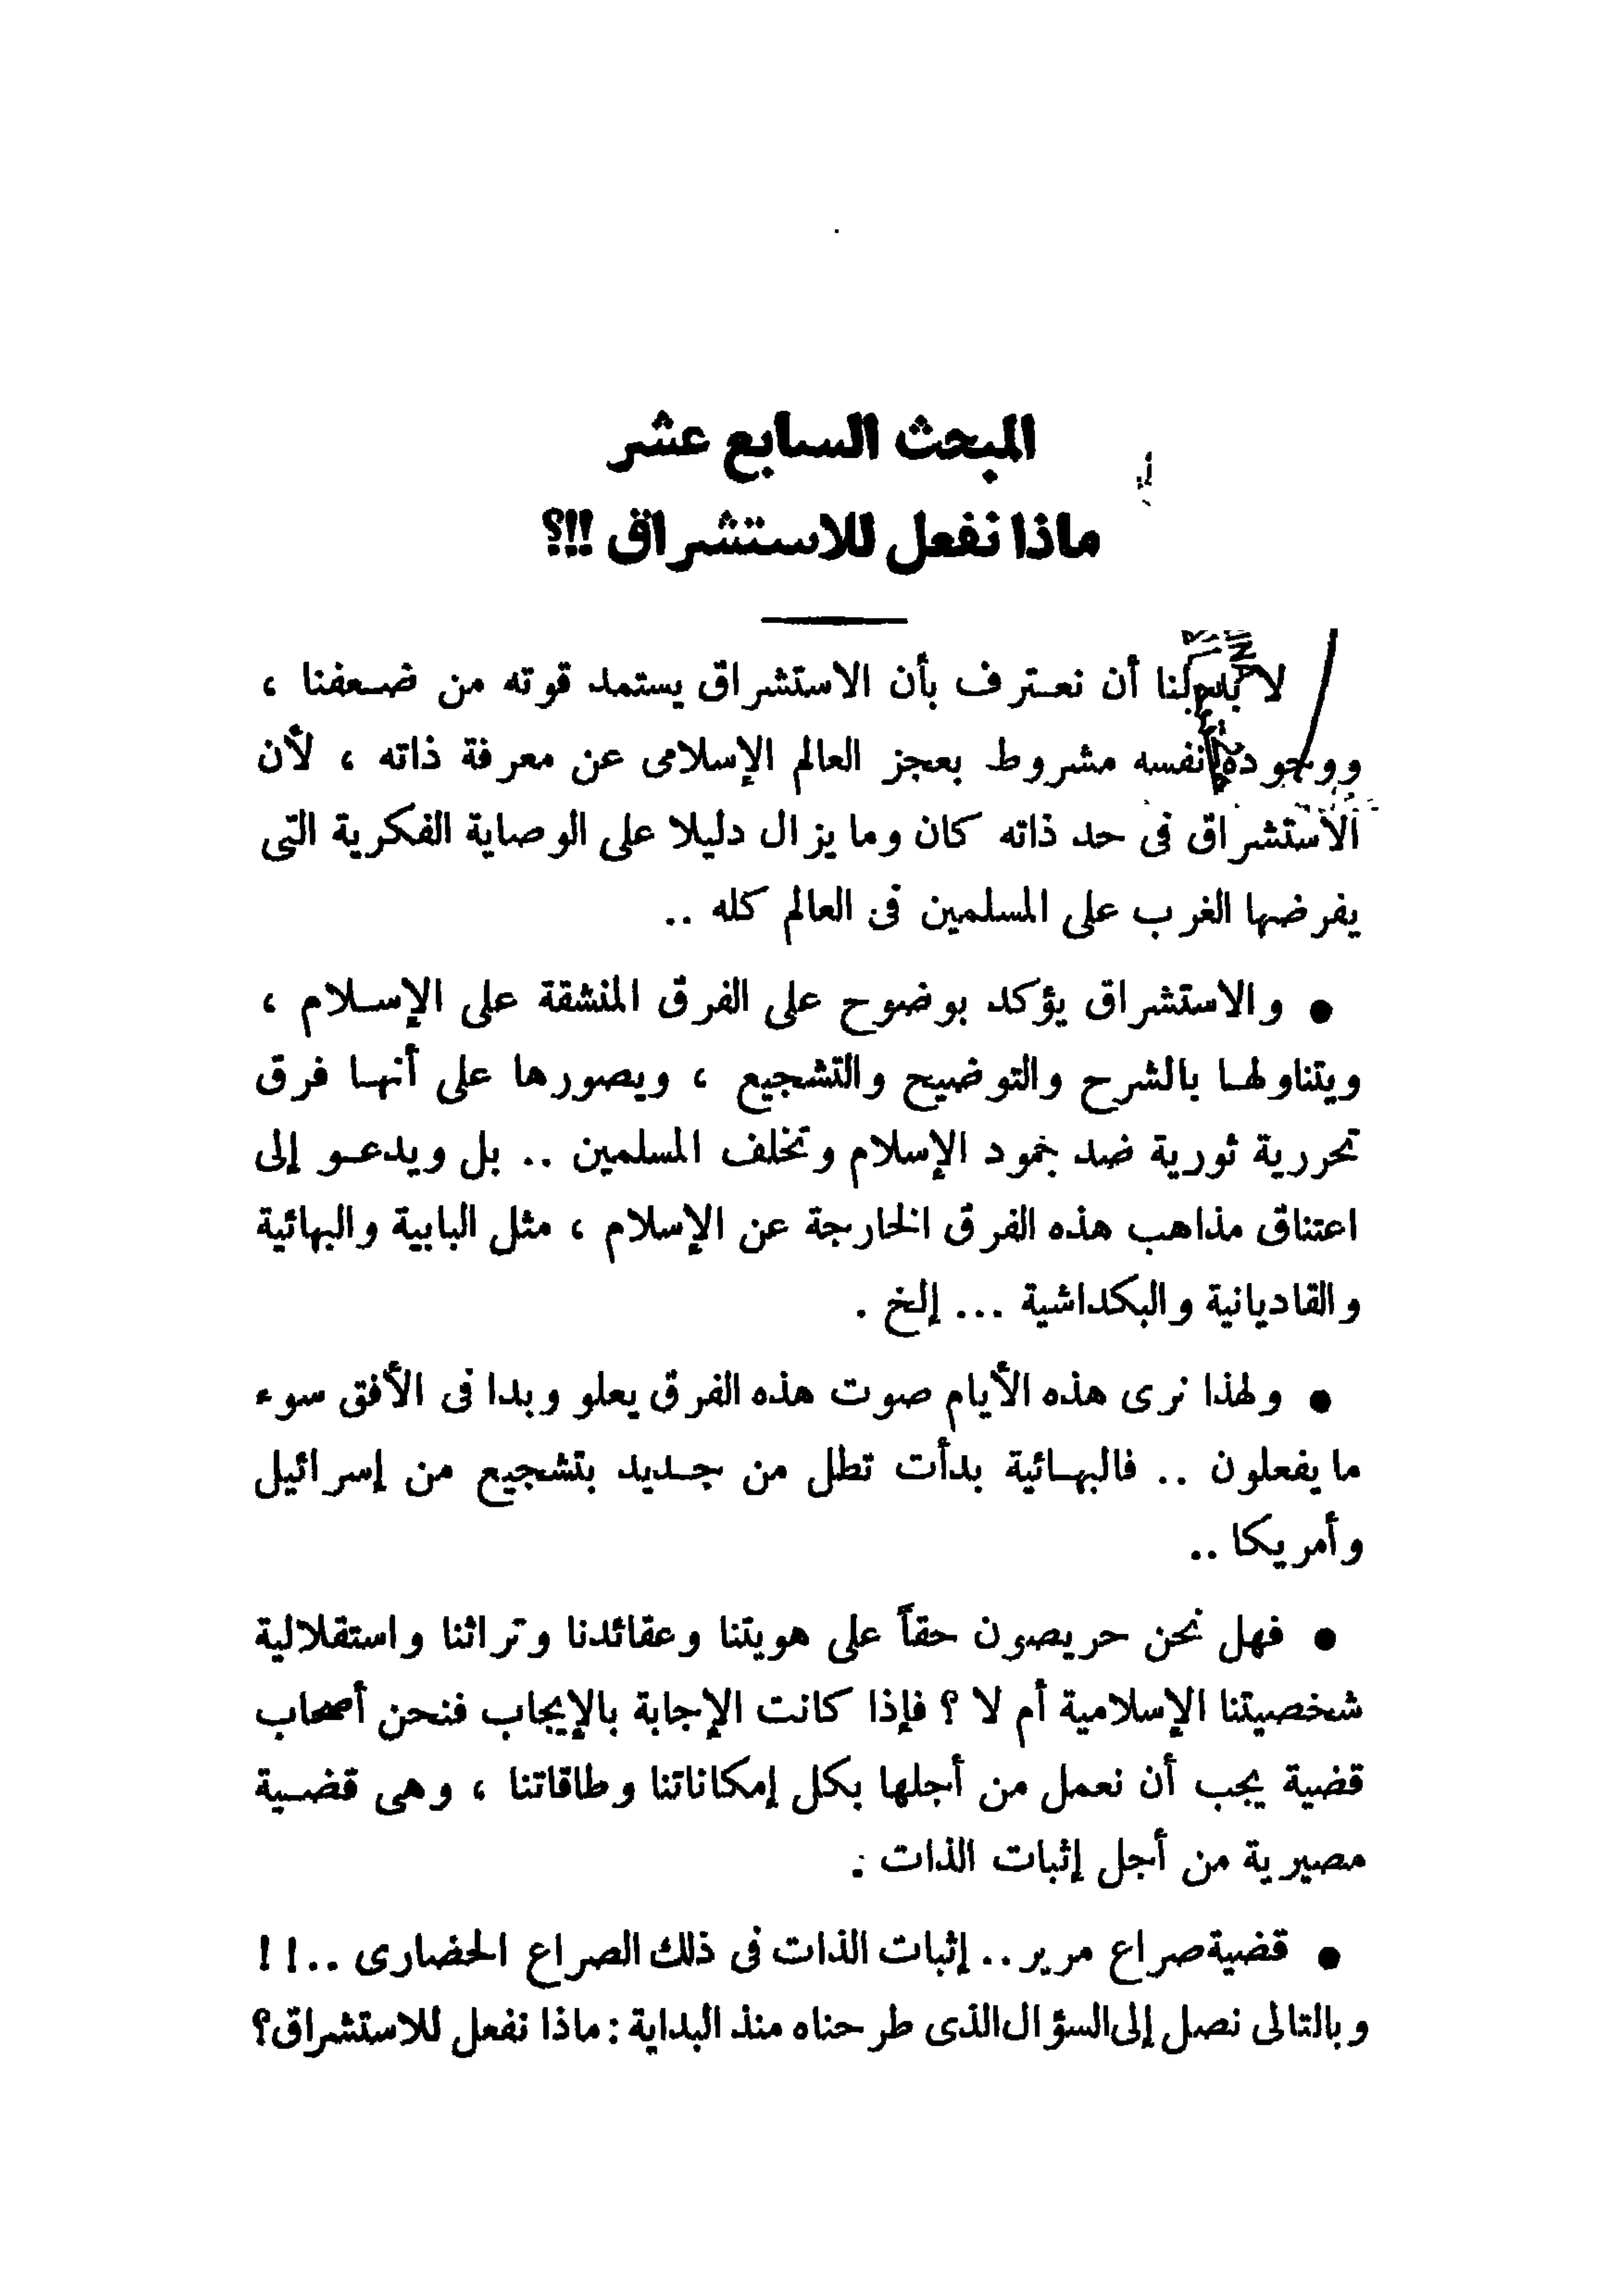 المبحث السابع عشر
ماذا نفعل للاستشراق !!؟
لا بد لنا أن نعترف بأن الاستشراق يستمد قوته من ضعفنا ،
ووجوده نفسه مشروط بعجز العالم الإسلامى عن معرفة ذاته ، لأن
الاستشراق فى حد ذاته كان وما يزال دليلا على الوصاية الفكرية التى
يفرضها الغرب على المسلمين فى العالم كله ..
● والاستشراق يؤكد بوضوح على الفرق المنشقة على الإسلام ،
ويتناولها بالشرح والتوضيح والتشجيع ، ويصورها على أنها فرق
تحررية ثورية ضد جمود الإسلام وتخلف المسلمين .. بل ويدعو إلى
اعتناق مذاهب هذه الفرق الخارجة عن الإسلام ، مثل البابية والبهائية
والقاديانية والبكداشية ... إلخ .
● ولهذا نرى هذه الأيام صوت هذه الفرق يعلو وبدا فى الأفق سوء
ما يفعلون .. فالبهائية بدأت تطل من جديد بتشجيع من إسرائيل
وأمريكا ..
● فهل نحن حريصون حقاً على هويتنا وعقائدنا وتراثنا واستقلالية
شخصيتنا الإسلامية أم لا ؟ فإذا كانت الإجابة بالإيجاب فنحن أصحاب
قضية يجب أن نعمل من أجلها بكل إمكاناتنا وطاقاتنا ، وهى قضية
مصيرية من أجل إثبات الذات .
● قضية صراع مرير .. إثبات الذات فى ذلك الصراع الحضارى ..!!
وبالتالى نصل إلى السؤال الذى طرحناه منذ البداية : ماذا نفعل للاستشراق؟